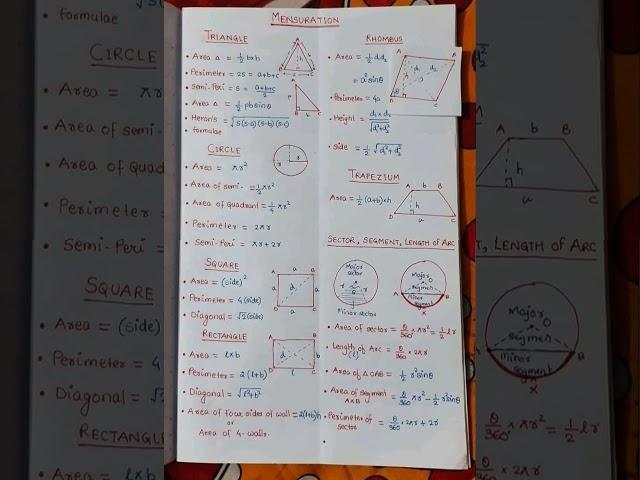 MENSURATION
TRIANGLE
• Area Δ = 1/2 b×h
• Perimeter = 2S = a+b+c
• Semi-Peri = S = a+b+c/2
• Area Δ = 1/2 pb sinθ
• Heron's formulae = √S(S-a)(S-b)(S-c)
CIRCLE
• Area = πr²
• Area of semi- = 1/2 πr²
• Area of Quadrant = 1/4 πr²
• Perimeter = 2πr
• Semi-Peri = πr + 2r
SQUARE
• Area = (Side)²
• Perimeter = 4 (side)
• Diagonal = √2 (side)
RECTANGLE
• Area = l×b
• Perimeter = 2(l+b)
• Diagonal = √l²+b²
• Area of four sides of wall = 2(l+b)h
or
Area of 4-walls.
RHOMBUS
• Area = 1/2 d₁d₂
= a² sinθ
• Perimeter = 4a
• Height = d₁×d₂/√d₁²+d₂²
• Side = 1/2 √d₁²+d₂²
TRAPEZIUM
Area = 1/2 (a+b)×h
A b B
h
D a C
SECTOR, SEGMENT, LENGTH OF ARC
Major sector
Minor sector
Major segmen
Minor segmen
A O B
X
• Area of sector = θ/360° × πr² = 1/2 lr
• Length of Arc (l) = θ/360 × 2πr
• Area of Δ OAB = 1/2 r² sinθ
• Area of segment AXB = θ/360 πr² - 1/2 r² sinθ
• Perimeter of sector = θ/360° × 2πr + 2r